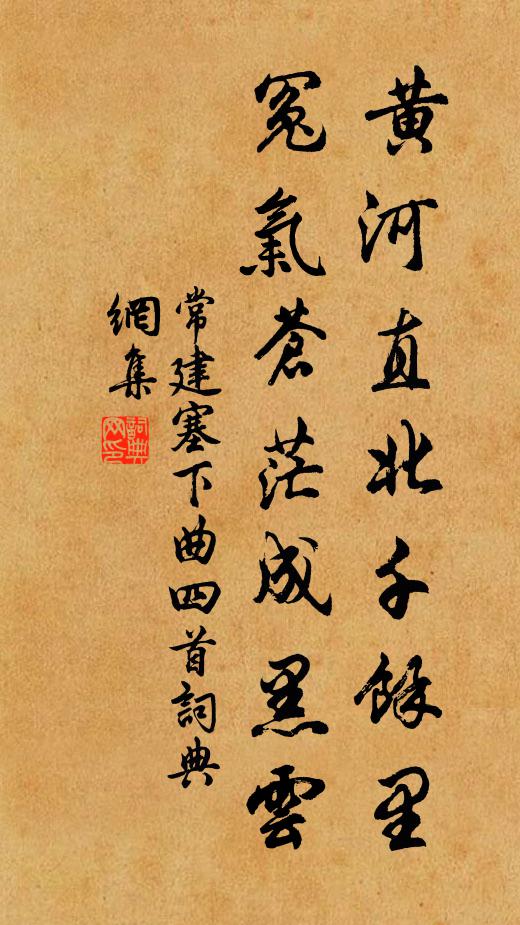 黃河直北千餘里
冤氣蒼茫成黑雲
常建塞下曲四首詞典
網集
詞典
网印